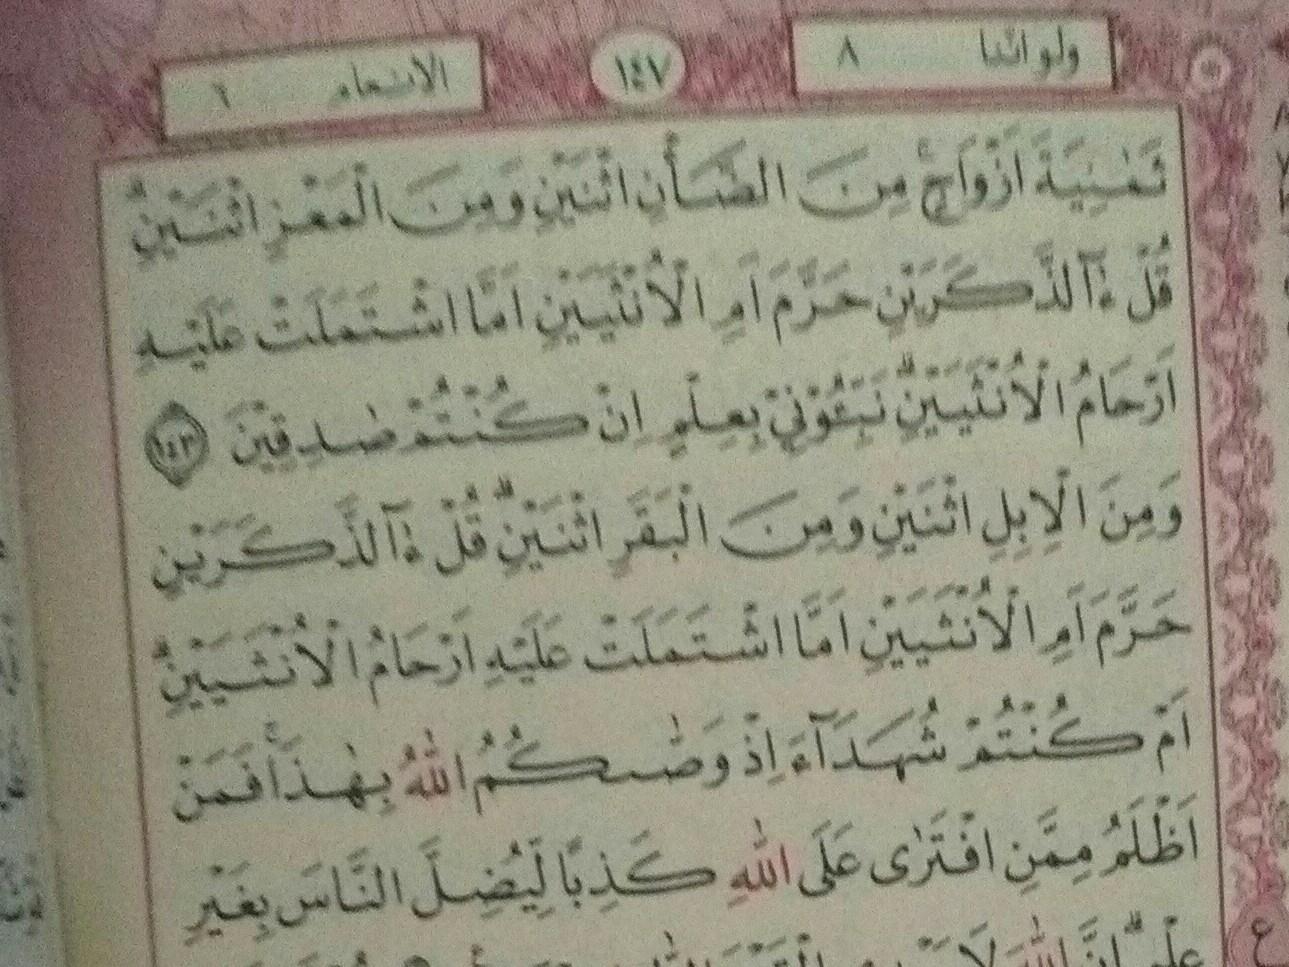 ولو اننا ٨
١٤٧
الانعام ٦
ثَمٰنِيَةَ اَزْوَاجٍۚ مِنَ الضَّأْنِ اثْنَيْنِ وَمِنَ الْمَعْزِ اثْنَيْنِۗ
قُلْ ءٰۤالذَّكَرَيْنِ حَرَّمَ اَمِ الْاُنْثَيَيْنِ اَمَّا اشْتَمَلَتْ عَلَيْهِ
اَرْحَامُ الْاُنْثَيَيْنِۗ نَبِّـُٔوْنِيْ بِعِلْمٍ اِنْ كُنْتُمْ صٰدِقِيْنَ ١٤٣
وَمِنَ الْاِبِلِ اثْنَيْنِ وَمِنَ الْبَقَرِ اثْنَيْنِۗ قُلْ ءٰۤالذَّكَرَيْنِ
حَرَّمَ اَمِ الْاُنْثَيَيْنِ اَمَّا اشْتَمَلَتْ عَلَيْهِ اَرْحَامُ الْاُنْثَيَيْنِۗ
اَمْ كُنْتُمْ شُهَدَاۤءَ اِذْ وَصّٰىكُمُ اللّٰهُ بِهٰذَاۚ فَمَنْ
اَظْلَمُ مِمَّنِ افْتَرٰى عَلَى اللّٰهِ كَذِبًا لِّيُضِلَّ النَّاسَ بِغَيْرِ
عِلْمٍۗ اِنَّ اللّٰهَ لَا
ع